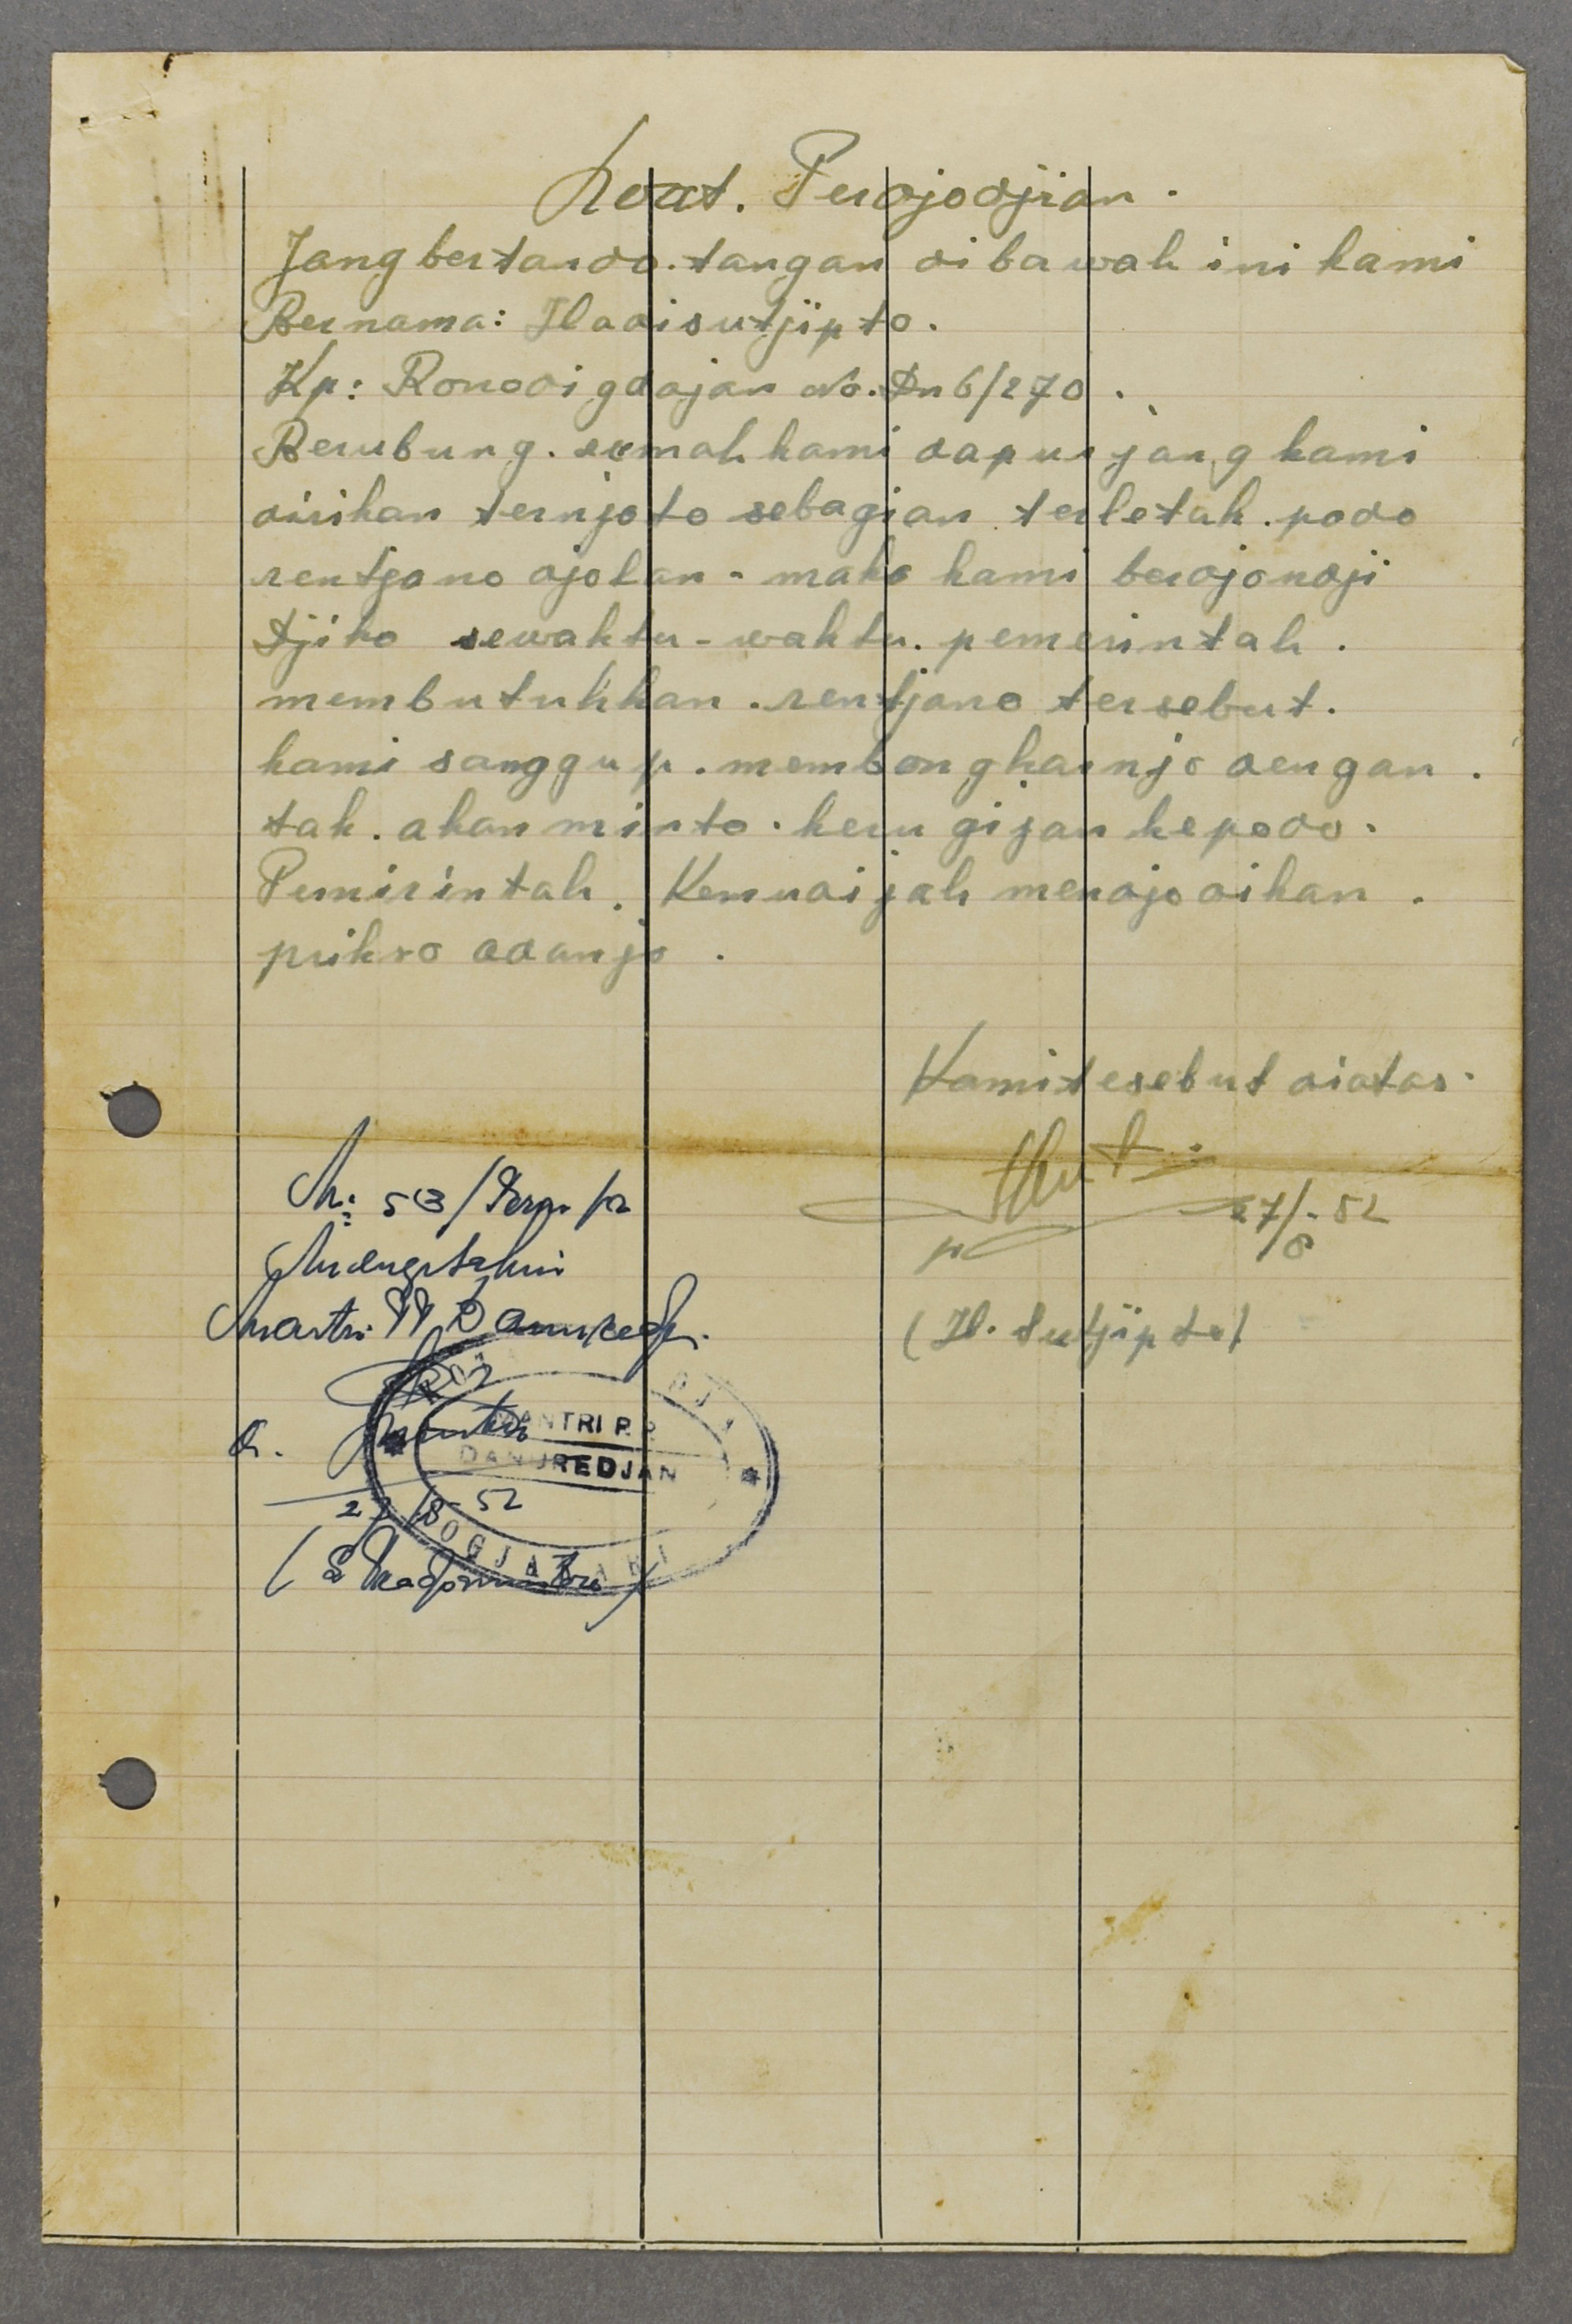 Surat. Perdjodjian.
Jang bertanda. tangan di bawah ini kami
Bernama: Hadisutjipto.
Kp: Ronodigdajan No. Dn 6/270.
Berubung. rumah kami dapur jang kami
dirikan ternjata sebagian terletak. pada
rentjana djalan - maka kami berdjandji
djika sewaktu-waktu. pemerintah.
membutuhkan. rentjana tersebut.
kami sanggup. membongkarnja dengan.
tak. akan minta. kerugijan kepada.
Pemirintah. Kemudijah mendjadikan.
priksa adanja.
Kami tesebut diatas.
27/8-52
(H. Sutjipto)
N: 53/Perm/
Mengetahui
Mantri PP Danuredj.
MANTRI P.P.
DANUREDJAN
JOGJAKARTA
27/8-52